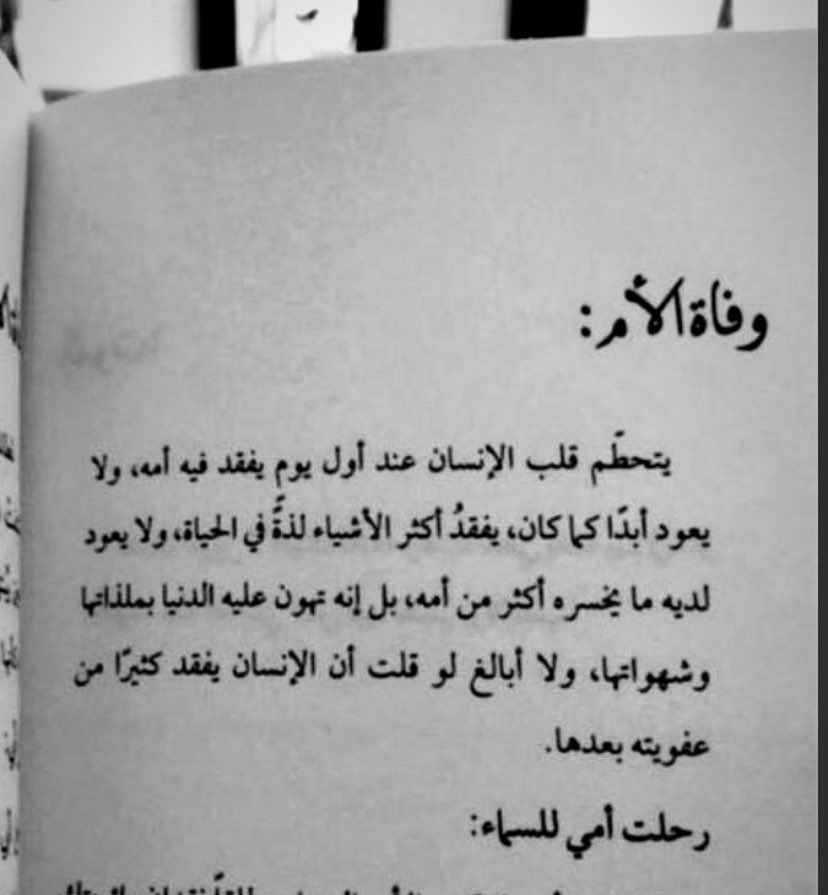 وفاة الأم:
يتحطّم قلب الإنسان عند أول يوم يفقد فيه أمه، ولا
يعود أبدًا كما كان، يفقدُ أكثر الأشياء لذةً في الحياة، ولا يعود
لديه ما يخسره أكثر من أمه، بل إنه تهون عليه الدنيا بملذاتها
وشهواتها، ولا أبالغ لو قلت أن الإنسان يفقد كثيرًا من
عفويته بعدها.
رحلت أمي للسماء: